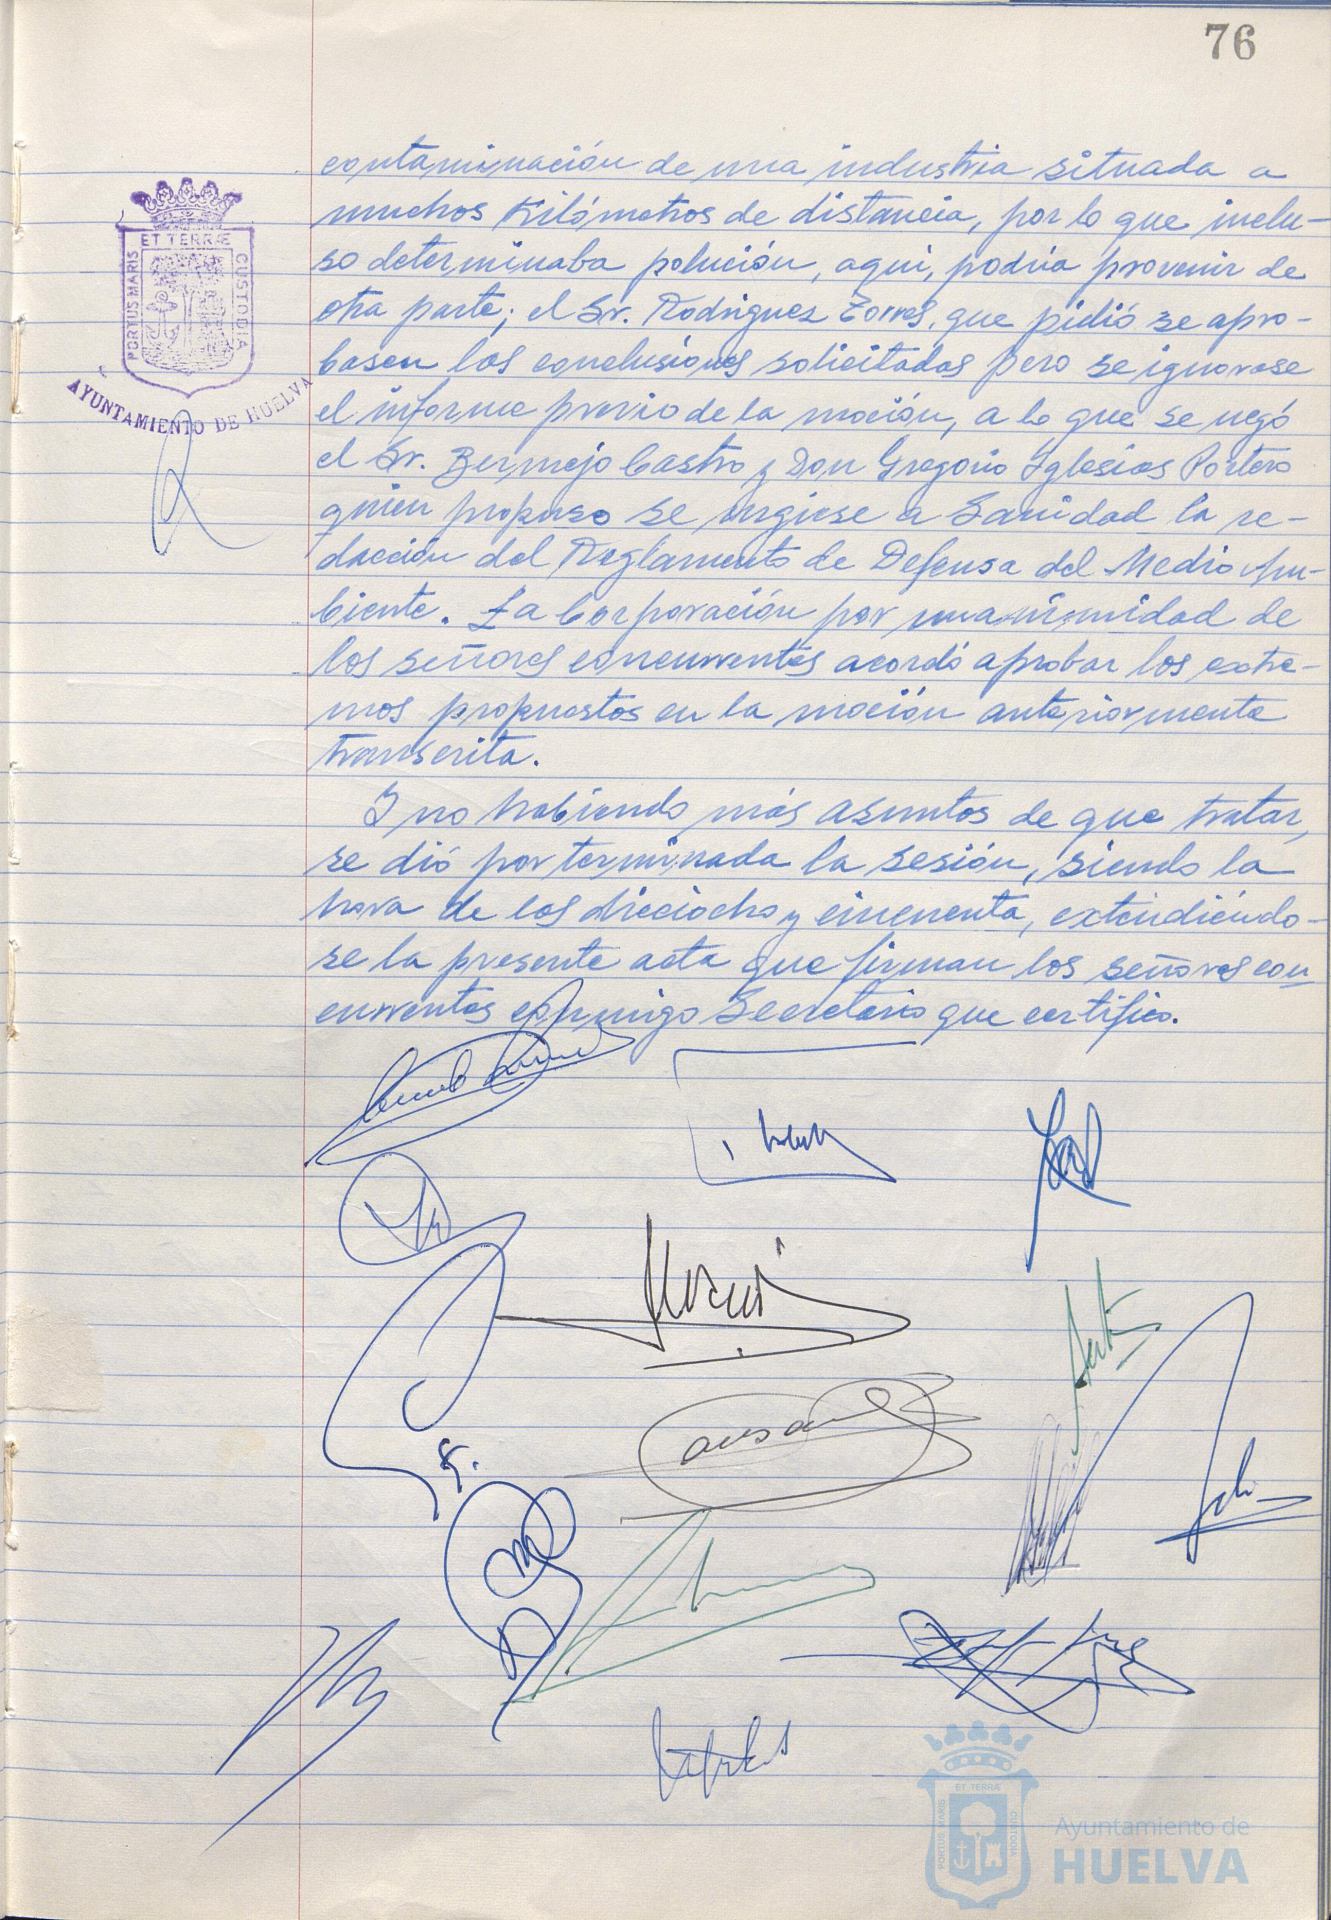 76
contaminación de una industria situada a
muchos Kilómetros de distancia, por lo que inclu-
so determinaba polución, aqui, podria provenir de
otra parte; el Sr. Rodriguez Torres, que pidió se apro-
basen las conclusiones solicitadas pero se ignorase
el informe previo de la moción, a lo que se negó
el Sr. Bermejo Castro y Don Gregorio Iglesias Portero
quien propuso se urgiese a Sanidad la re-
dacción del Reglamento de Defensa del Medio Am-
biente. La Corporación por unanimidad de
los señores concurrentes acordó aprobar los extre-
mos propuestos en la moción anteriormente
transcrita.
Y no habiendo más asuntos de que tratar,
se dió por terminada la sesión, siendo la
hora de las dieciocho y cincuenta, extendiéndo-
se la presente acta que firman los señores con
currentes conmigo Secretario que certifico.
PORTUS MARIS ET TERRÆ CUSTODIA
AYUNTAMIENTO DE HUELVA
PORTUS MARIS ET TERRA CUSTODIA
Ayuntamiento de
HUELVA